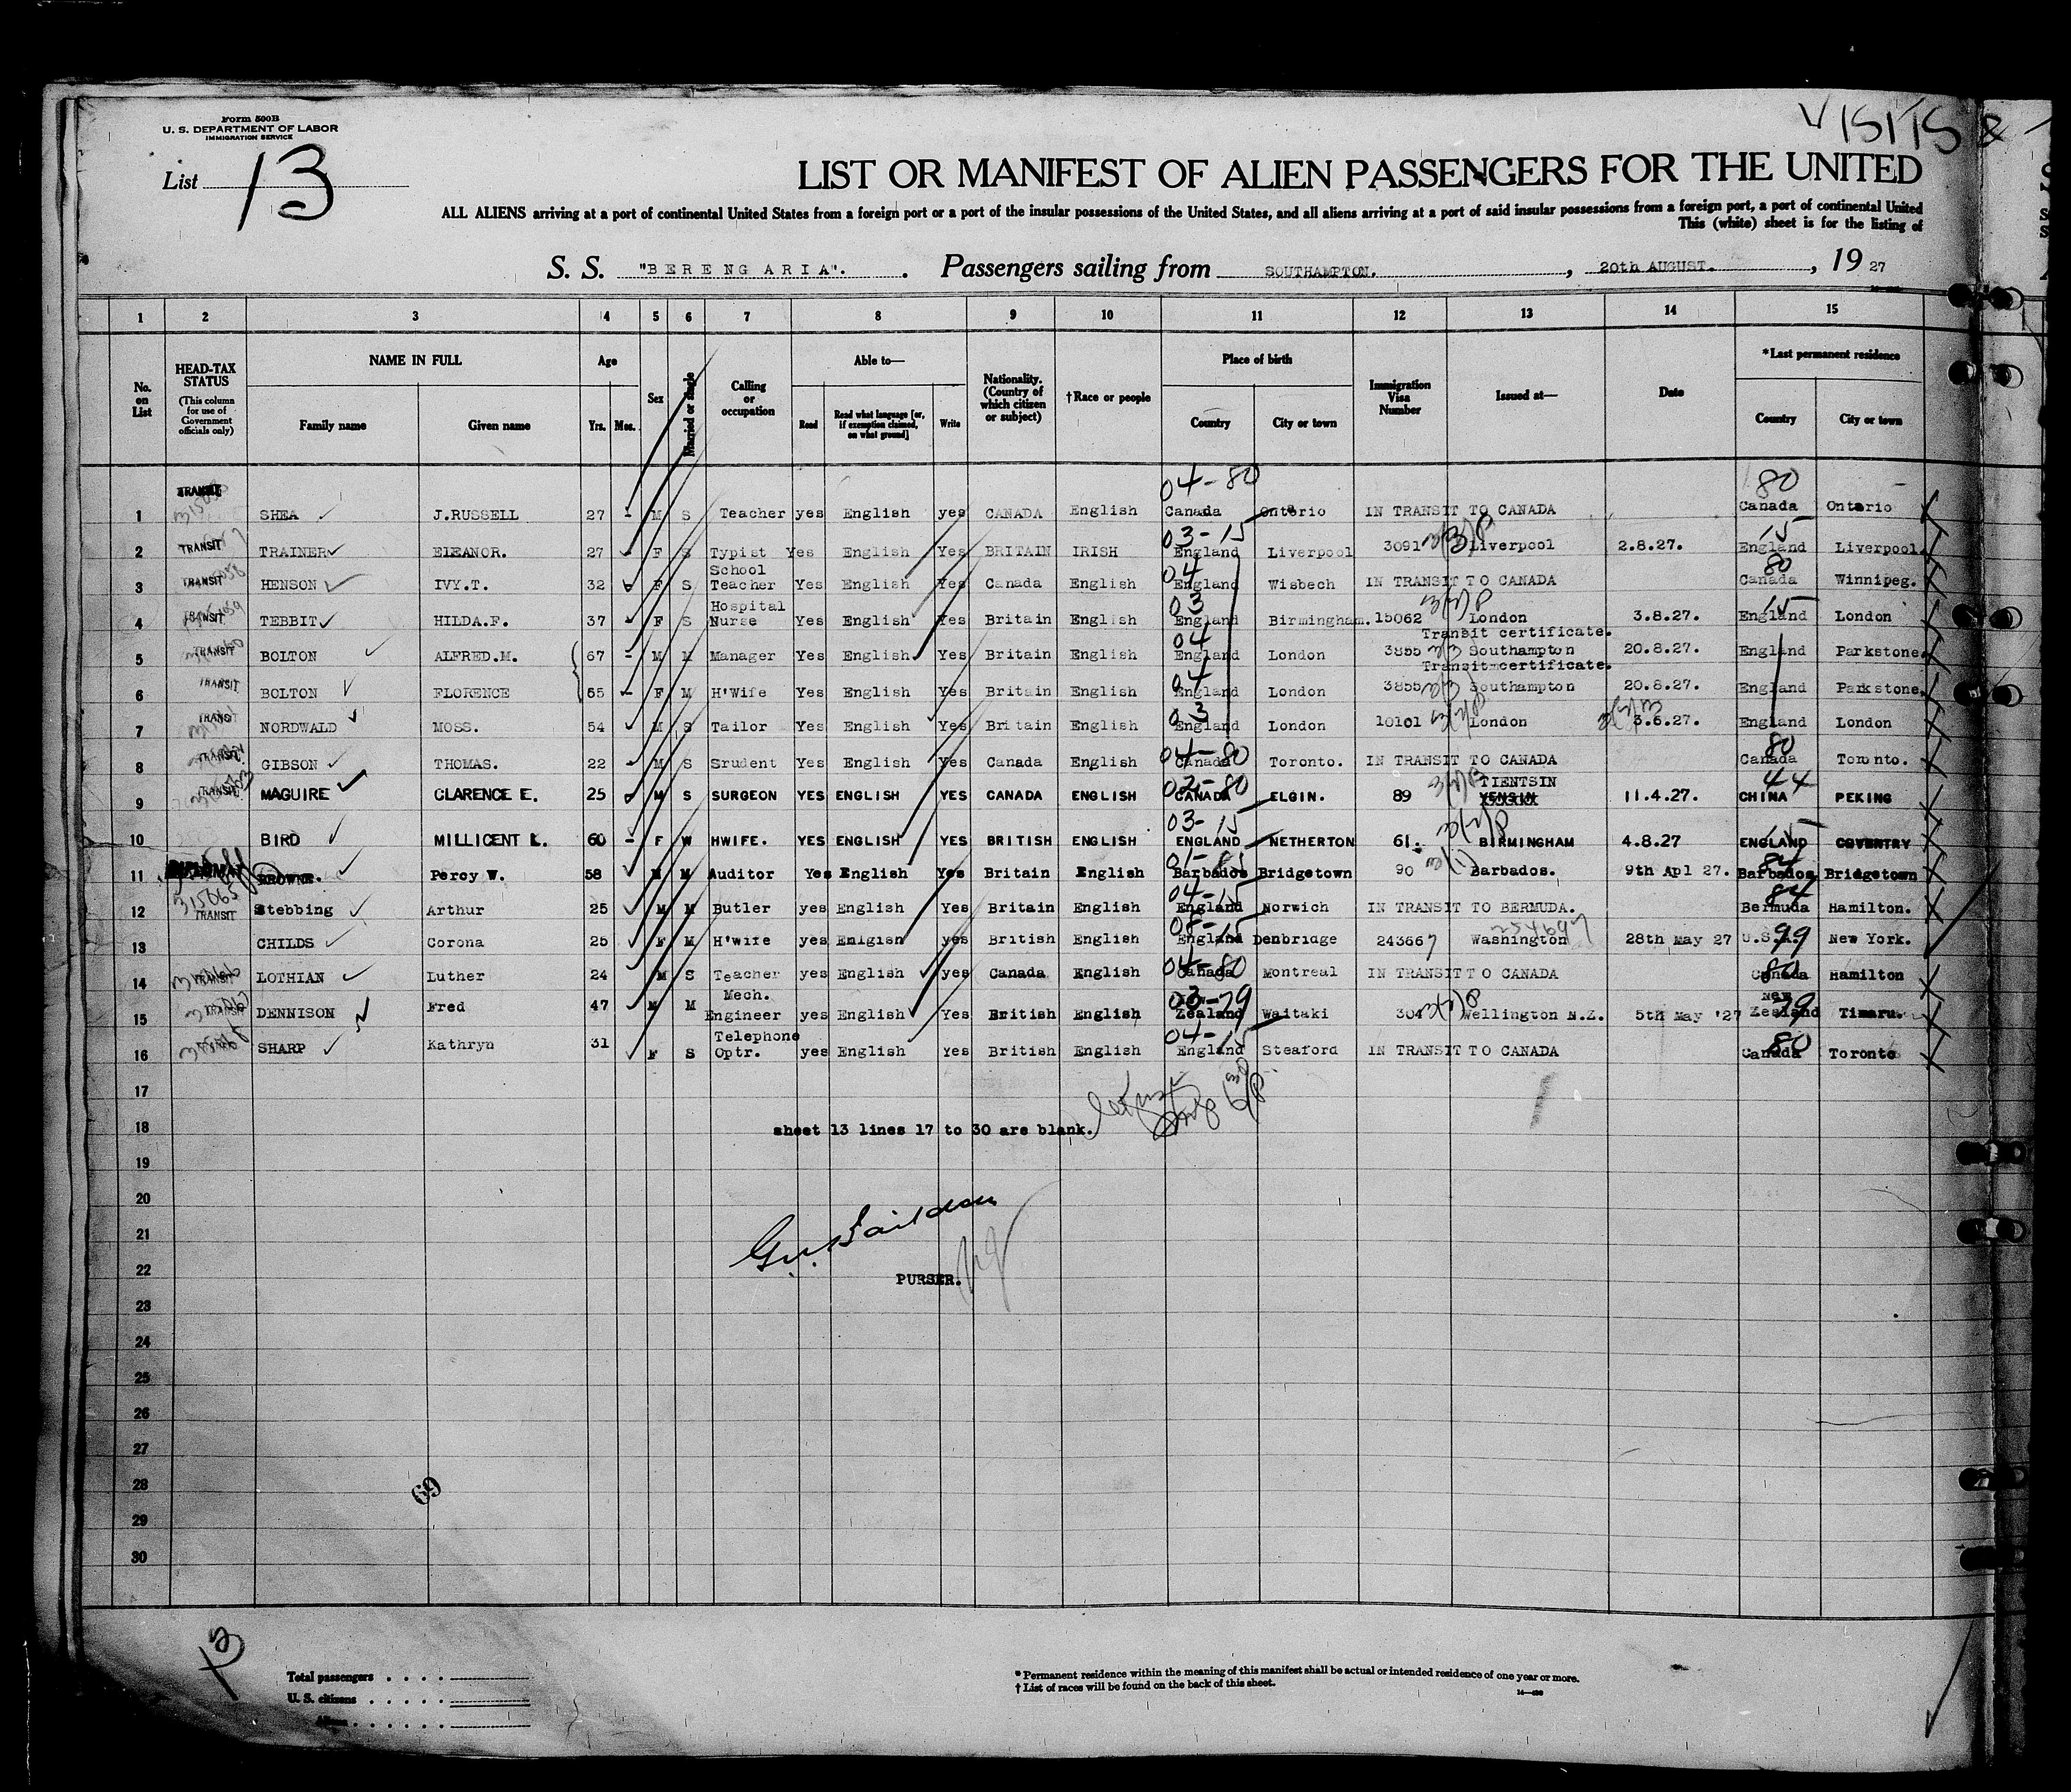 VISITS &
Form 500B
U. S. DEPARTMENT OF LABOR
IMMIGRATION SERVICE
List 13
LIST OR MANIFEST OF ALIEN PASSENGERS FOR THE UNITED
ALL ALIENS arriving at a port of continental United States from a foreign port or a port of the insular possessions of the United States, and all aliens arriving at a port of said insular possessions from a foreign port, a port of continental United
This (white) sheet is for the listing of
S. S. "BERENGARIA". Passengers sailing from SOUTHAMPTON. , 20th AUGUST. , 19 27
1 2 3 4 5 6 7 8 9 10 11 12 13 14 15
No. on List
HEAD-TAX STATUS (This column for use of Government officials only)
NAME IN FULL Family name Given name
Age Yrs. Mos.
Sex
Married or single
Calling or occupation
Able to— Read Read what language [or, if exemption claimed, on what ground] Write
Nationality. (Country of which citizen or subject)
†Race or people
Place of birth Country City or town
Immigration Visa Number
Issued at—
Date
*Last permanent residence Country City or town
04-80 80
1 TRANSIT SHEA J.RUSSELL 27 - M S Teacher yes English yes CANADA English Canada Ontario IN TRANSIT TO CANADA Canada Ontario
03-15 15
2 TRANSIT TRAINER ELEANOR. 27 F S Typist Yes English Yes BRITAIN IRISH England Liverpool 3091 Liverpool 2.8.27. England Liverpool.
04 80
3 TRANSIT HENSON IVY.T. 32 F S School Teacher Yes English Yes Canada English England Wisbech IN TRANSIT TO CANADA Canada Winnipeg.
03 15
4 TRANSIT TEBBIT HILDA.F. 37 F S Hospital Nurse Yes English Yes Britain English England Birmingham. 15062 London 3.8.27. England London
04
5 TRANSIT BOLTON ALFRED.M. 67 - M M Manager Yes English Yes Britain English England London 3855 Transit certificate. Southampton 20.8.27. England Parkstone.
04
6 TRANSIT BOLTON FLORENCE 55 - F M H'Wife Yes English Yes Britain English England London 3855 Transit certificate. Southampton 20.8.27. England Parkstone.
03
7 TRANSIT NORDWALD MOSS. 54 M S Tailor Yes English Yes Britain English England London 10101 London 3.6.27. England London
04-80 80
8 TRANSIT GIBSON THOMAS. 22 M S Srudent Yes English Yes Canada English Canada Toronto. IN TRANSIT TO CANADA Canada Toronto.
02-80 44
9 TRANSIT MAGUIRE CLARENCE E. 25 M S SURGEON YES ENGLISH YES CANADA ENGLISH CANADA ELGIN. 89 TIENTSIN 11.4.27. CHINA PEKING
03-15 15
10 BIRD MILLICENT L. 60 - F W HWIFE. YES ENGLISH YES BRITISH ENGLISH ENGLAND NETHERTON 61. BIRMINGHAM 4.8.27 ENGLAND COVENTRY
84
11 BROWNE. Percy W. 58 M M Auditor Yes English Yes Britain English Barbados Bridgetown 90 Barbados. 9th Apl 27. Barbados Bridgetown
04-15 84
12 315065 TRANSIT Stebbing Arthur 25 M M Butler yes English Yes Britain English England Norwich IN TRANSIT TO BERMUDA. Bermuda Hamilton.
08-15 99
13 CHILDS Corona 25 F M H'wife yes Enlgish yes British English England Denbridge 243667 Washington 28th May 27 U.S.A. New York.
04-80 80
14 LOTHIAN Luther 24 M S Teacher yes English yes Canada English Canada Montreal IN TRANSIT TO CANADA Canada Hamilton
03-79 79
15 TRANSIT DENNISON Fred 47 M M Mech. Engineer yes English Yes British English Zealand Waitaki 304 Wellington N.Z. 5th May '27 New Zealand Timaru.
04-15 80
16 SHARP Kathryn 31 F S Telephone Optr. yes English Yes British English England Steaford IN TRANSIT TO CANADA Canada Toronto
17
18 sheet 13 lines 17 to 30 are blank.
19
20
21
22 PURSER.
23
24
25
26
27
28 69
29
30
13
Total passengers
U. S. citizens
Aliens
* Permanent residence within the meaning of this manifest shall be actual or intended residence of one year or more.
† List of races will be found on the back of this sheet.